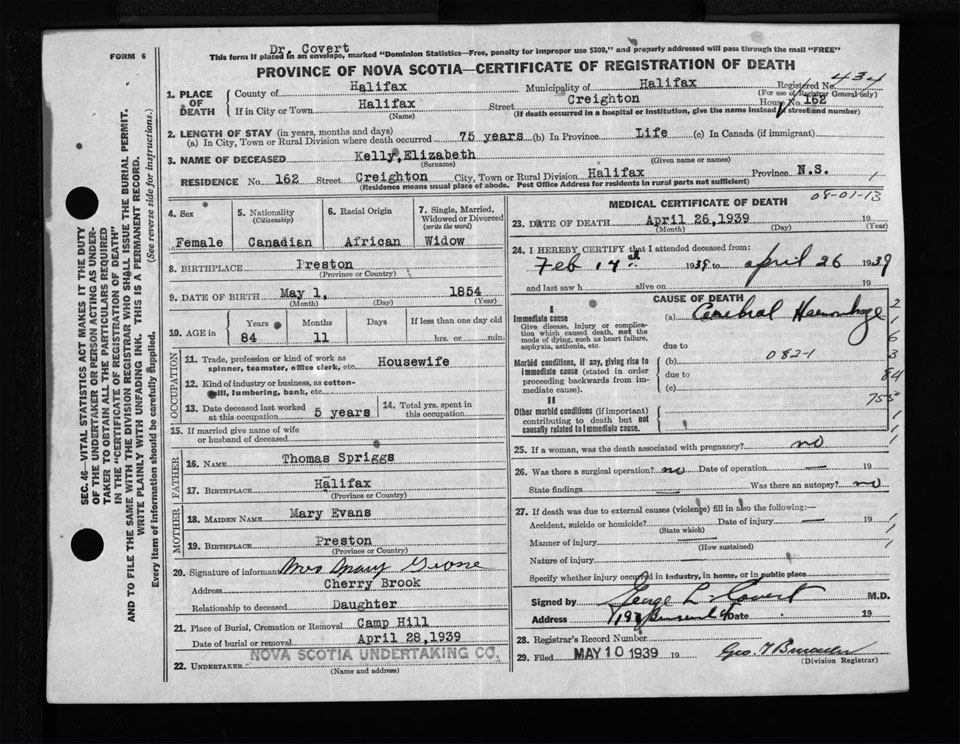 Dr. Covert
FORM 6
This form if placed in an envelope, marked "Dominion Statistics—Free, penalty for improper use $300," and properly addressed will pass through the mail "FREE"
PROVINCE OF NOVA SCOTIA—CERTIFICATE OF REGISTRATION OF DEATH
1. PLACE OF DEATH
County of Halifax Municipality of Halifax Registered No. 434
(For use of Registrar General only)
If in City or Town Halifax Street Creighton House No. 162
(Name) (If death occurred in a hospital or institution, give the name instead of street and number)
2. LENGTH OF STAY (in years, months and days)
(a) In City, Town or Rural Division where death occurred 75 years (b) In Province Life (c) In Canada (if immigrant)
3. NAME OF DECEASED Kelly, Elizabeth
(Surname) (Given name or names)
RESIDENCE No. 162 Street Creighton City, Town or Rural Division Halifax Province N.S. 1
(Residence means usual place of abode. Post Office Address for residents in rural parts not sufficient)
08-01-13
4. Sex Female
5. Nationality (Citizenship) Canadian
6. Racial Origin African
7. Single, Married, Widowed or Divorced (write the word) Widow
8. BIRTHPLACE Preston
(Province or Country)
9. DATE OF BIRTH May 1, 1854
(Month) (Day) (Year)
10. AGE in Years 84 Months 11 Days If less than one day old hrs. or min.
OCCUPATION
11. Trade, profession or kind of work as spinner, teamster, office clerk, etc. Housewife
12. Kind of industry or business, as cotton-mill, lumbering, bank, etc.
13. Date deceased last worked at this occupation 5 years
14. Total yrs. spent in this occupation
15. If married give name of wife or husband of deceased
FATHER
16. NAME Thomas Spriggs
17. BIRTHPLACE Halifax
(Province or Country)
MOTHER
18. MAIDEN NAME Mary Evans
19. BIRTHPLACE Preston
(Province or Country)
20. Signature of informant Mrs Mary
Address Cherry Brook
Relationship to deceased Daughter
21. Place of Burial, Cremation or Removal Camp Hill
Date of burial or removal April 28, 1939
22. UNDERTAKER NOVA SCOTIA UNDERTAKING CO.
(Name and address)
MEDICAL CERTIFICATE OF DEATH
23. DATE OF DEATH April 26, 1939 19
(Month) (Day) (Year)
24. I HEREBY CERTIFY that I attended deceased from:
Feb 14th 1939 to April 26 1939
and last saw h alive on 19
CAUSE OF DEATH
I
Immediate cause
Give disease, injury or complication which caused death, not the mode of dying, such as heart failure, asphyxia, asthenia, etc.
(a) Cerebral Haemorrhage
due to
Morbid conditions, if any, giving rise to immediate cause (stated in order proceeding backwards from immediate cause).
(b) 082-1
due to
(c)
II
Other morbid conditions (if important) contributing to death but not causally related to immediate cause.
25. If a woman, was the death associated with pregnancy? no
26. Was there a surgical operation? no Date of operation — 19
State findings — Was there an autopsy? no
27. If death was due to external causes (violence) fill in also the following:—
Accident, suicide or homicide? Date of injury — 19
(State which)
Manner of injury —
(How sustained)
Nature of injury —
Specify whether injury occurred in industry, in home, or in public place
Signed by George L. Covert M.D.
Address Date 19
28. Registrar's Record Number
29. Filed MAY 10 1939 19
(Division Registrar)
SEC. 46—VITAL STATISTICS ACT MAKES IT THE DUTY
OF THE UNDERTAKER OR PERSON ACTING AS UNDERTAKER TO OBTAIN ALL THE PARTICULARS REQUIRED
IN THE "CERTIFICATE OF REGISTRATION OF DEATH"
AND TO FILE THE SAME WITH THE DIVISION REGISTRAR WHO SHALL ISSUE THE BURIAL PERMIT.
WRITE PLAINLY WITH UNFADING INK. THIS IS A PERMANENT RECORD.
Every item of information should be carefully supplied. (See reverse side for instructions.)